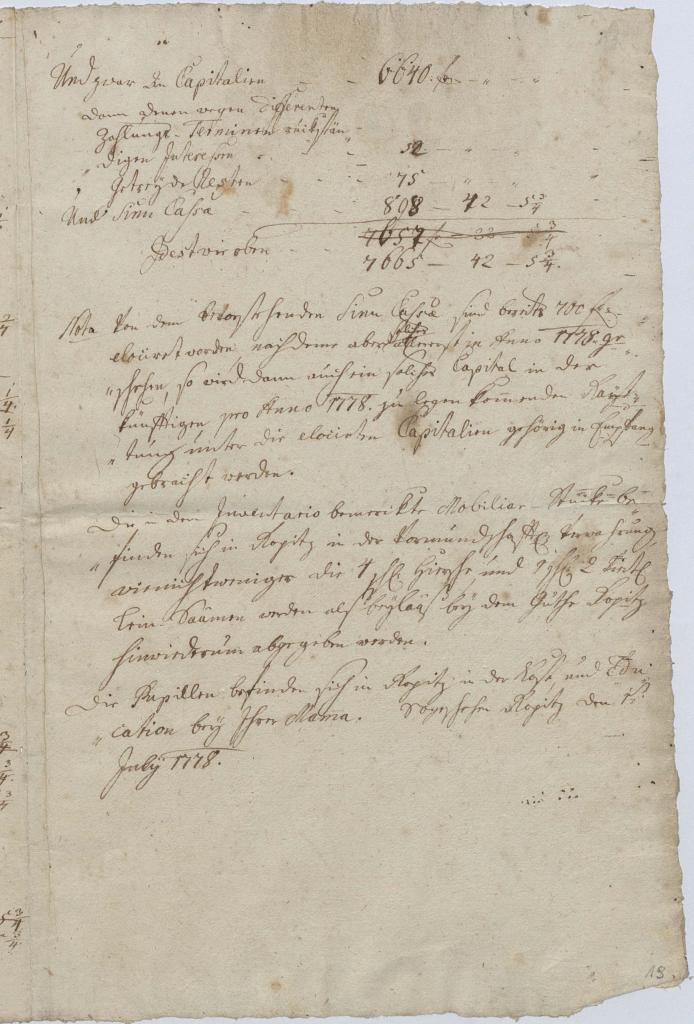 Und zwar In Capitalien - - 6640. f - " - "
dann denen wegen differenten
Zahlungs-Terminen rückstän
"digen Interessen - - 52 - " - "
Getreyde Resten - - 75 - " - "
Und Sinu Cassa - - 898 - 42 - 5 3/4
7657 f - 22 - 3/4
Gest wie oben - 7665 - 42 - 5 3/4.
Nota Von dem bevorstehenden Sinu Cassa sind bereits 700 f
elociret worden, nachdeme aber solches erst in Anno 1778. ge
"schehen, so wird dann auch ein solches Capital in der
künfftigen pro Anno 1778. zu legen kommenden Rayt-
"tung unter die elocirten Capitalien gehörig in Empfang
gebracht werden.
Die in dem Inventario bemerckte Mobiliar-Stücke be-
"finden sich in Kopitz in der Vormundschafft Verwahrung
wie nicht weniger die 4 Hirsche, und 2 Viertl
Lein Saamen werden als beyläuf bey dem Guthe Kopitz
hinwiederum abgegeben werden.
Die Pupillen befinden sich in Kopitz in der Kost und Edu
"cation bey Ihrer Mama. So geschehen Kopitz den 1t
July 1778.
18